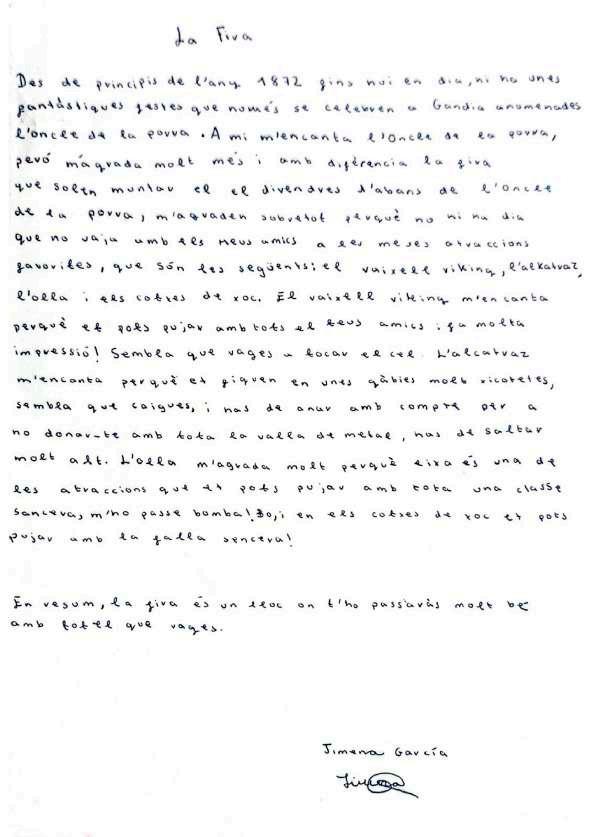 La Fira
Des de principis de l'any 1872 fins hui en dia, ni ha unes
fantàstiques festes que només se celebren a Gandia anomenades
l'oncle de la porra. A mi m'encanta l'Oncle de la porra,
peró m'agrada molt més i amb diferència la fira
que solen muntar el el divendres d'abans de l'Oncle
de la porra, m'agraden sobretot perquè no hi ha dia
que no vaja amb els meus amics a les meues atraccions
favorites, que són les següents: el vaixell viking, l'alkatraz,
l'olla i els cotxes de xoc. El vaixell viking m'encanta
perquè et pots pujar amb tots el teus amics i fa molta
impressió! Sembla que vages a tocar el cel. L'alcatraz
m'encanta perquè et fiquen en unes gàbies molt xicotetes,
sembla que caigues, i has de anar amb compte per a
no donar-te amb tota la valla de metal, has de saltar
molt alt. L'olla m'agrada molt perquè eixa és una de
les atraccions que et pots pujar amb tota una classe
sancera, m'ho passe bomba! i en els cotxes de xoc et pots
pujar amb la falla sencera!
En resum, la fira és un lloc on t'ho passaràs molt bé
amb totel que vages.
Jimena García
Jimena